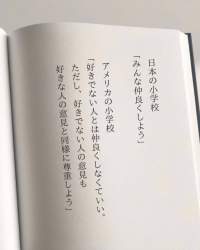 日本の小学校
「みんな仲良くしよう」
アメリカの小学校
「好きでない人とは仲良くしなくていい。
ただし、好きでない人の意見も
好きな人の意見と同様に尊重しよう」